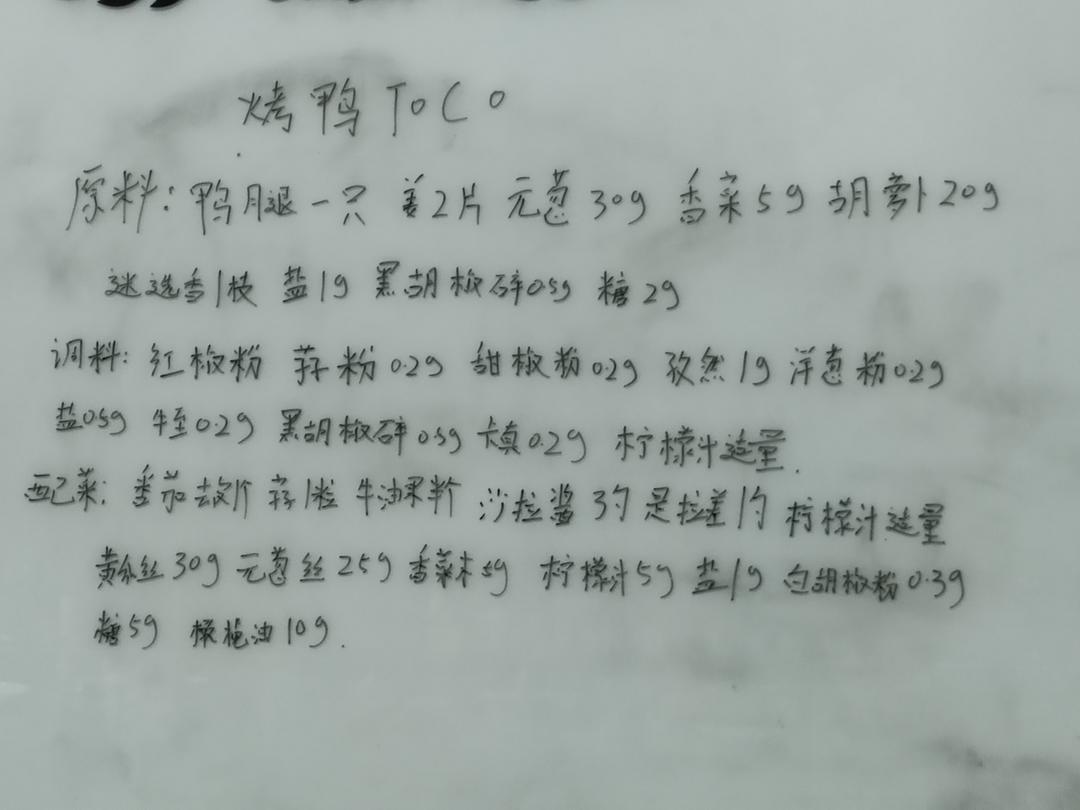 烤鸭 ToCo
原料：鸭腿一只 姜2片 元葱30g 香菜5g 胡萝卜20g
迷迭香1枝 盐1g 黑胡椒碎0.5g 糖2g
调料：红椒粉 蒜粉0.2g 甜椒粉0.2g 孜然1g 洋葱粉0.2g
盐0.5g 牛至0.2g 黑胡椒碎0.5g 0.2g 柠檬汁适量.
配菜：番茄 蒜1粒 牛油果半个 沙拉酱3勺 是拉差1勺 柠檬汁适量
黄瓜丝30g 元葱丝25g 香菜末5g 柠檬汁5g 盐1g 白胡椒粉0.3g
糖5g 橄榄油10g.